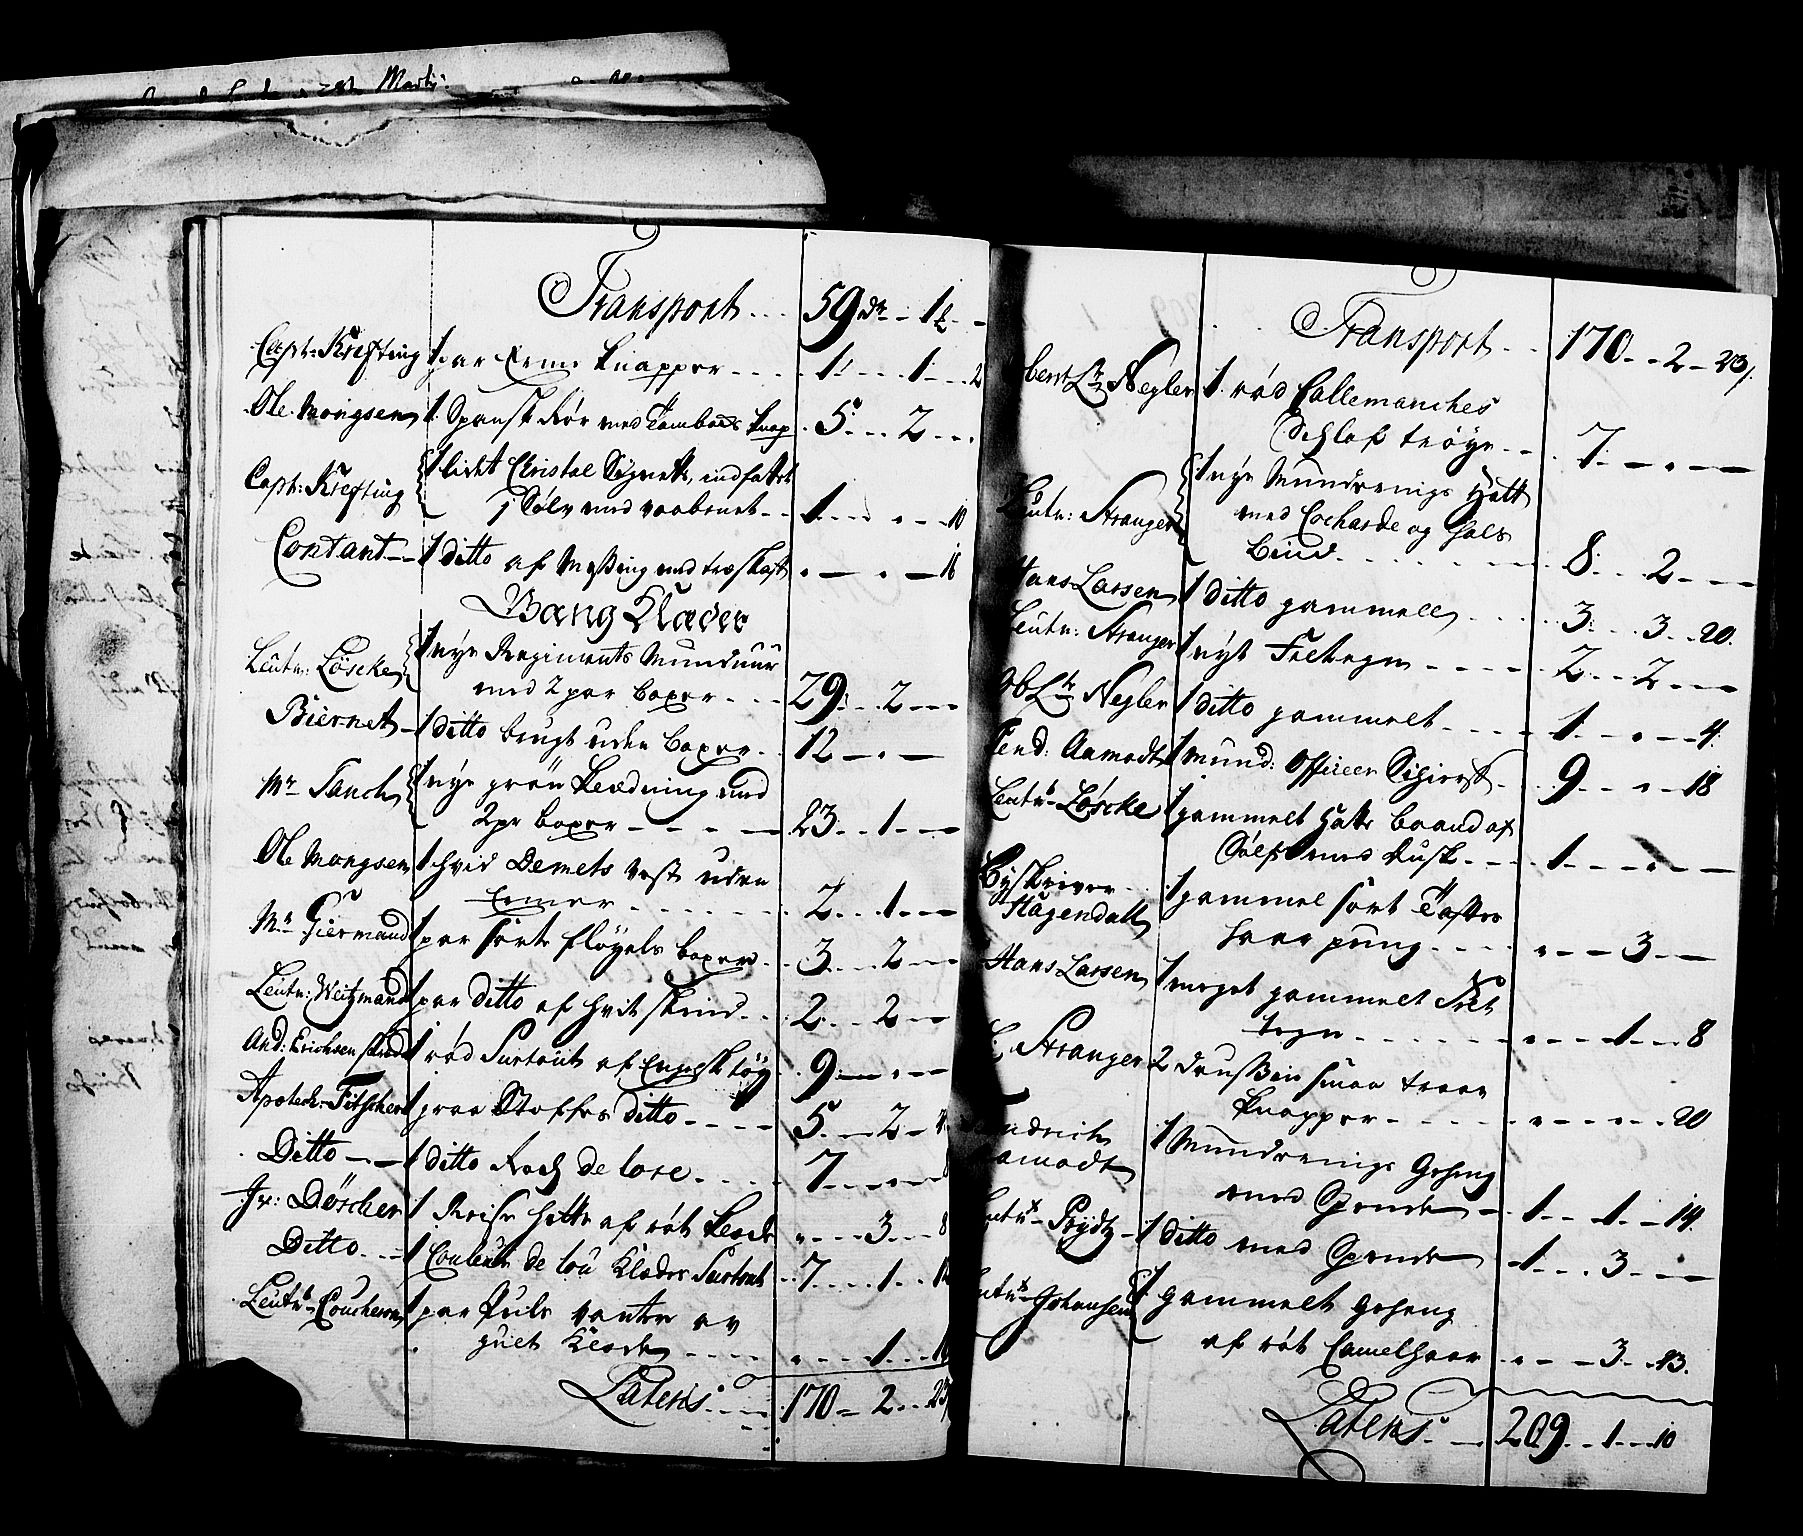 Transport . . . 59 dr. - 1 ß. -
Capt: Krefting 1 par Erme Knapper . . . . 1 . . . 1 . . 2
Ole Mongsen 1 Spansk Rør med Tambacks knap . 5 . . . 2 . . .
Capt: Krefting 1 lidet Cristal Signette, indfattet
i Sølv med vaabenet . . 1 . . . . . 10
Contant 1 ditto af Messing med træskaft . - . - 16
Gang Klæder
Leutn: Löscke 1 nye Regiments Munduur
med 2 par boxer . . . 29 . . 2 . . .
Biernet 1 ditto brugt uden boxer . . 12 - . -
Mr Tanch 1 nye grön Klædning med
2 pr boxer - - . - 23 . . 1 . - -
Ole Mongsen 1 hvid Demets vest uden
Ermer . . . . . . . 2 . . . 1 . - -
Mr Giermand 1 par sorte fløyels boxer . . 3 . . . 2 . . -
Leutn: Weitzmand 1 par ditto af hvit skind . . 2 . . . 2 . . -
And: Erichsen 1 rød Surtout af Engelsk tøy . . 9 - . - -
Apoteck: Fitscher 1 graa Stoffes ditto . . . . 5 . . . 2 -
Ditto 1 ditto Roch de lore . . . . 7 . . . . .
Jr: Döscher 1 Reise hette af röt Klæde . . . . 3 . . 8
Ditto 1 Couleur de lou Klædes Surtout . . 7 . . . 1 . .
Leutn: Coucheron 1 par Puls vanter av
guelt Klæde . . . . . . . . 1 . .
Latens . . . 170 - 2 . . 23
Transport . . 170 . . 2 - 23 ß.
Oberst Lt: Negler 1 rød Callemanches
Schlaf trøye . . 7 . - . - -
Leutn: Stranger 1 nye Munderings Hatt
med Cocharde og hals
bind . . . . . . . 8 . . 2 . - -
Hans Larsen 1 ditto gammell . . . . 3 . . . 3 . . 20.
Leutn: Stranger 1 nyt Feltegn . . . . 2 . . 2 . . -
Ob Lt: Negler 1 ditto gammelt . . . . 1 . - . - - 4.
Fend: Aamodt 1 Mund: Officeer . . 9 . . . . 18
Leutn: Löscke 1 gammelt Hatte baand af
Sølf med dusk . . . 1 . - - . - -
Byskriver
Hagendall 1 gammel sort Tafftes
haar pung . . . . . - - 3 . -
Hans Larsen 1 meget gammelt Felt
tegn . . . . . . . . . 1 . . 8
L. Stranger 2 dousßin smaa traae
knapper . . . . . . . . . . 20
Fendrich
Aamodt 1 Munderings Geheng
med Spende - 1 . - 1 . - 14.
Leutn: Prydtz 1 ditto med Spende 1 . . . 3 . - -
Leutn: Johansen 1 gammelt geheng
af röt Camelhaar . . - - 3 . . 13.
Latens . - 209 . . 1 . . 10